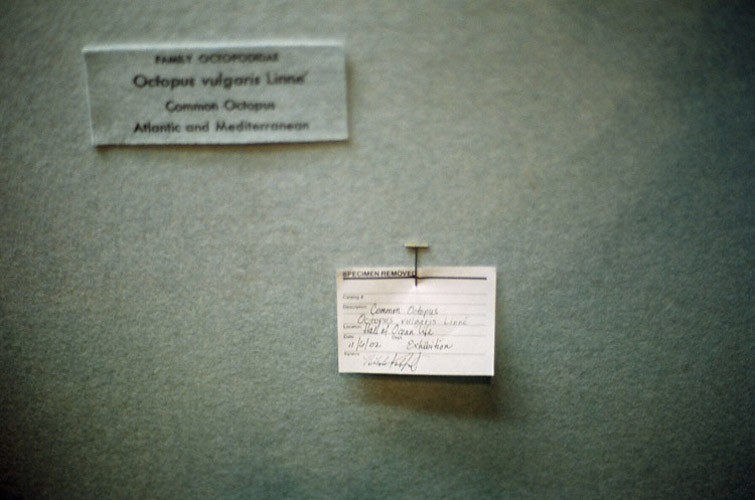 FAMILY OCTOPODIDAE
Octopus vulgaris Linné
Common Octopus
Atlantic and Mediterranean
SPECIMEN REMOVED
Catalog #
Description Common Octopus
Octopus vulgaris Linné
Location Hall of Ocean Life
Date Dept.
11/6/02 Exhibition